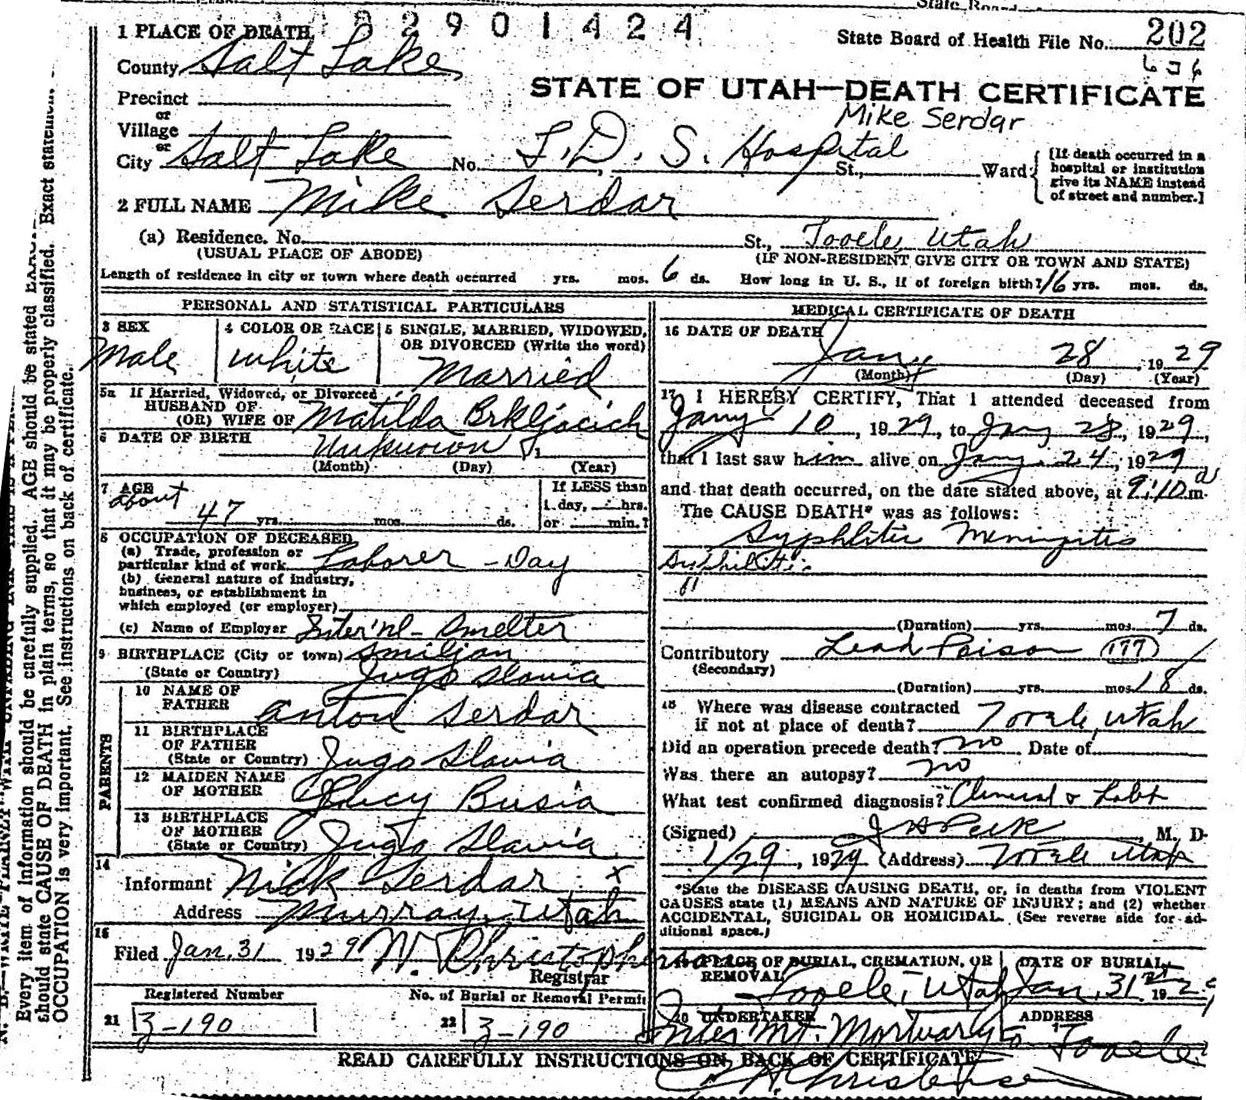 State Board
8 2 9 0 1 4 2 4
1 PLACE OF DEATH
State Board of Health File No. 202
County Salt Lake
6 5 6
STATE OF UTAH—DEATH CERTIFICATE
Precinct
Mike Serdar
or
Village
or
City Salt Lake No. L.D.S. Hospital St., Ward
[If death occurred in a hospital or institution give its NAME instead of street and number.]
2 FULL NAME Mike Serdar
(a) Residence. No. St., Tooele, Utah
(USUAL PLACE OF ABODE) (IF NON-RESIDENT GIVE CITY OR TOWN AND STATE)
Length of residence in city or town where death occurred yrs. mos. 6 ds. How long in U. S., if of foreign birth? 16 yrs. mos. ds.
PERSONAL AND STATISTICAL PARTICULARS
3 SEX
Male
4 COLOR OR RACE
White
5 SINGLE, MARRIED, WIDOWED, OR DIVORCED (Write the word)
Married
5a If Married, Widowed, or Divorced
HUSBAND OF
(OR) WIFE OF Matilda Brkljacich
6 DATE OF BIRTH Unknown
(Month) (Day) (Year)
7 AGE
about 47 yrs. mos. ds.
If LESS than
1 day, hrs.
or min.?
8 OCCUPATION OF DECEASED
(a) Trade, profession or
particular kind of work Laborer - Day
(b) General nature of industry,
business, or establishment in
which employed (or employer)
(c) Name of Employer Inter'nl - Smelter
9 BIRTHPLACE (City or town) Smiljan
(State or Country) Jugo Slavia
PARENTS
10 NAME OF
FATHER Anton Serdar
11 BIRTHPLACE
OF FATHER
(State or Country) Jugo Slavia
12 MAIDEN NAME
OF MOTHER Lucy Busia
13 BIRTHPLACE
OF MOTHER
(State or Country) Jugo Slavia
14
Informant Nick Serdar x
Address Murray, Utah
15
Filed Jan. 31 1929 W. Christopherson
Registrar
Registered Number
21 3-190
No. of Burial or Removal Permit
22 3-190
MEDICAL CERTIFICATE OF DEATH
16 DATE OF DEATH
Jany 28 1929
(Month) (Day) (Year)
17 I HEREBY CERTIFY, That I attended deceased from
Jany 10, 1929, to Jany 28, 1929,
that I last saw him alive on Jany. 24, 1929
and that death occurred, on the date stated above, at 9:10 a m.
The CAUSE DEATH* was as follows:
Syphlitic Meningitis
Syphilitic
"
(Duration) yrs. mos. 7 ds.
Contributory Lead Poison (177)
(Secondary)
(Duration) yrs. mos. 18 ds.
18 Where was disease contracted
if not at place of death? Tooele, Utah
Did an operation precede death? no Date of
Was there an autopsy? no
What test confirmed diagnosis? Clinical & Labt
(Signed) J H Peck, M. D.
1/29, 1929 (Address) Tooele Utah
*State the DISEASE CAUSING DEATH, or, in deaths from VIOLENT
CAUSES state (1) MEANS AND NATURE OF INJURY; and (2) whether
ACCIDENTAL, SUICIDAL OR HOMICIDAL. (See reverse side for ad-
ditional space.)
19 PLACE OF BURIAL, CREMATION, OR
REMOVAL Tooele, Utah
DATE OF BURIAL
Jan. 31st 1929
20 UNDERTAKER
Inter Mt. Mortuary Co
ADDRESS
Tooele
READ CAREFULLY INSTRUCTIONS ON BACK OF CERTIFICATE
Christensen
Every item of information should be carefully supplied. AGE should be stated
should state CAUSE OF DEATH in plain terms, so that it may be properly classified. Exact statement
OCCUPATION is very important. See instructions on back of certificate.